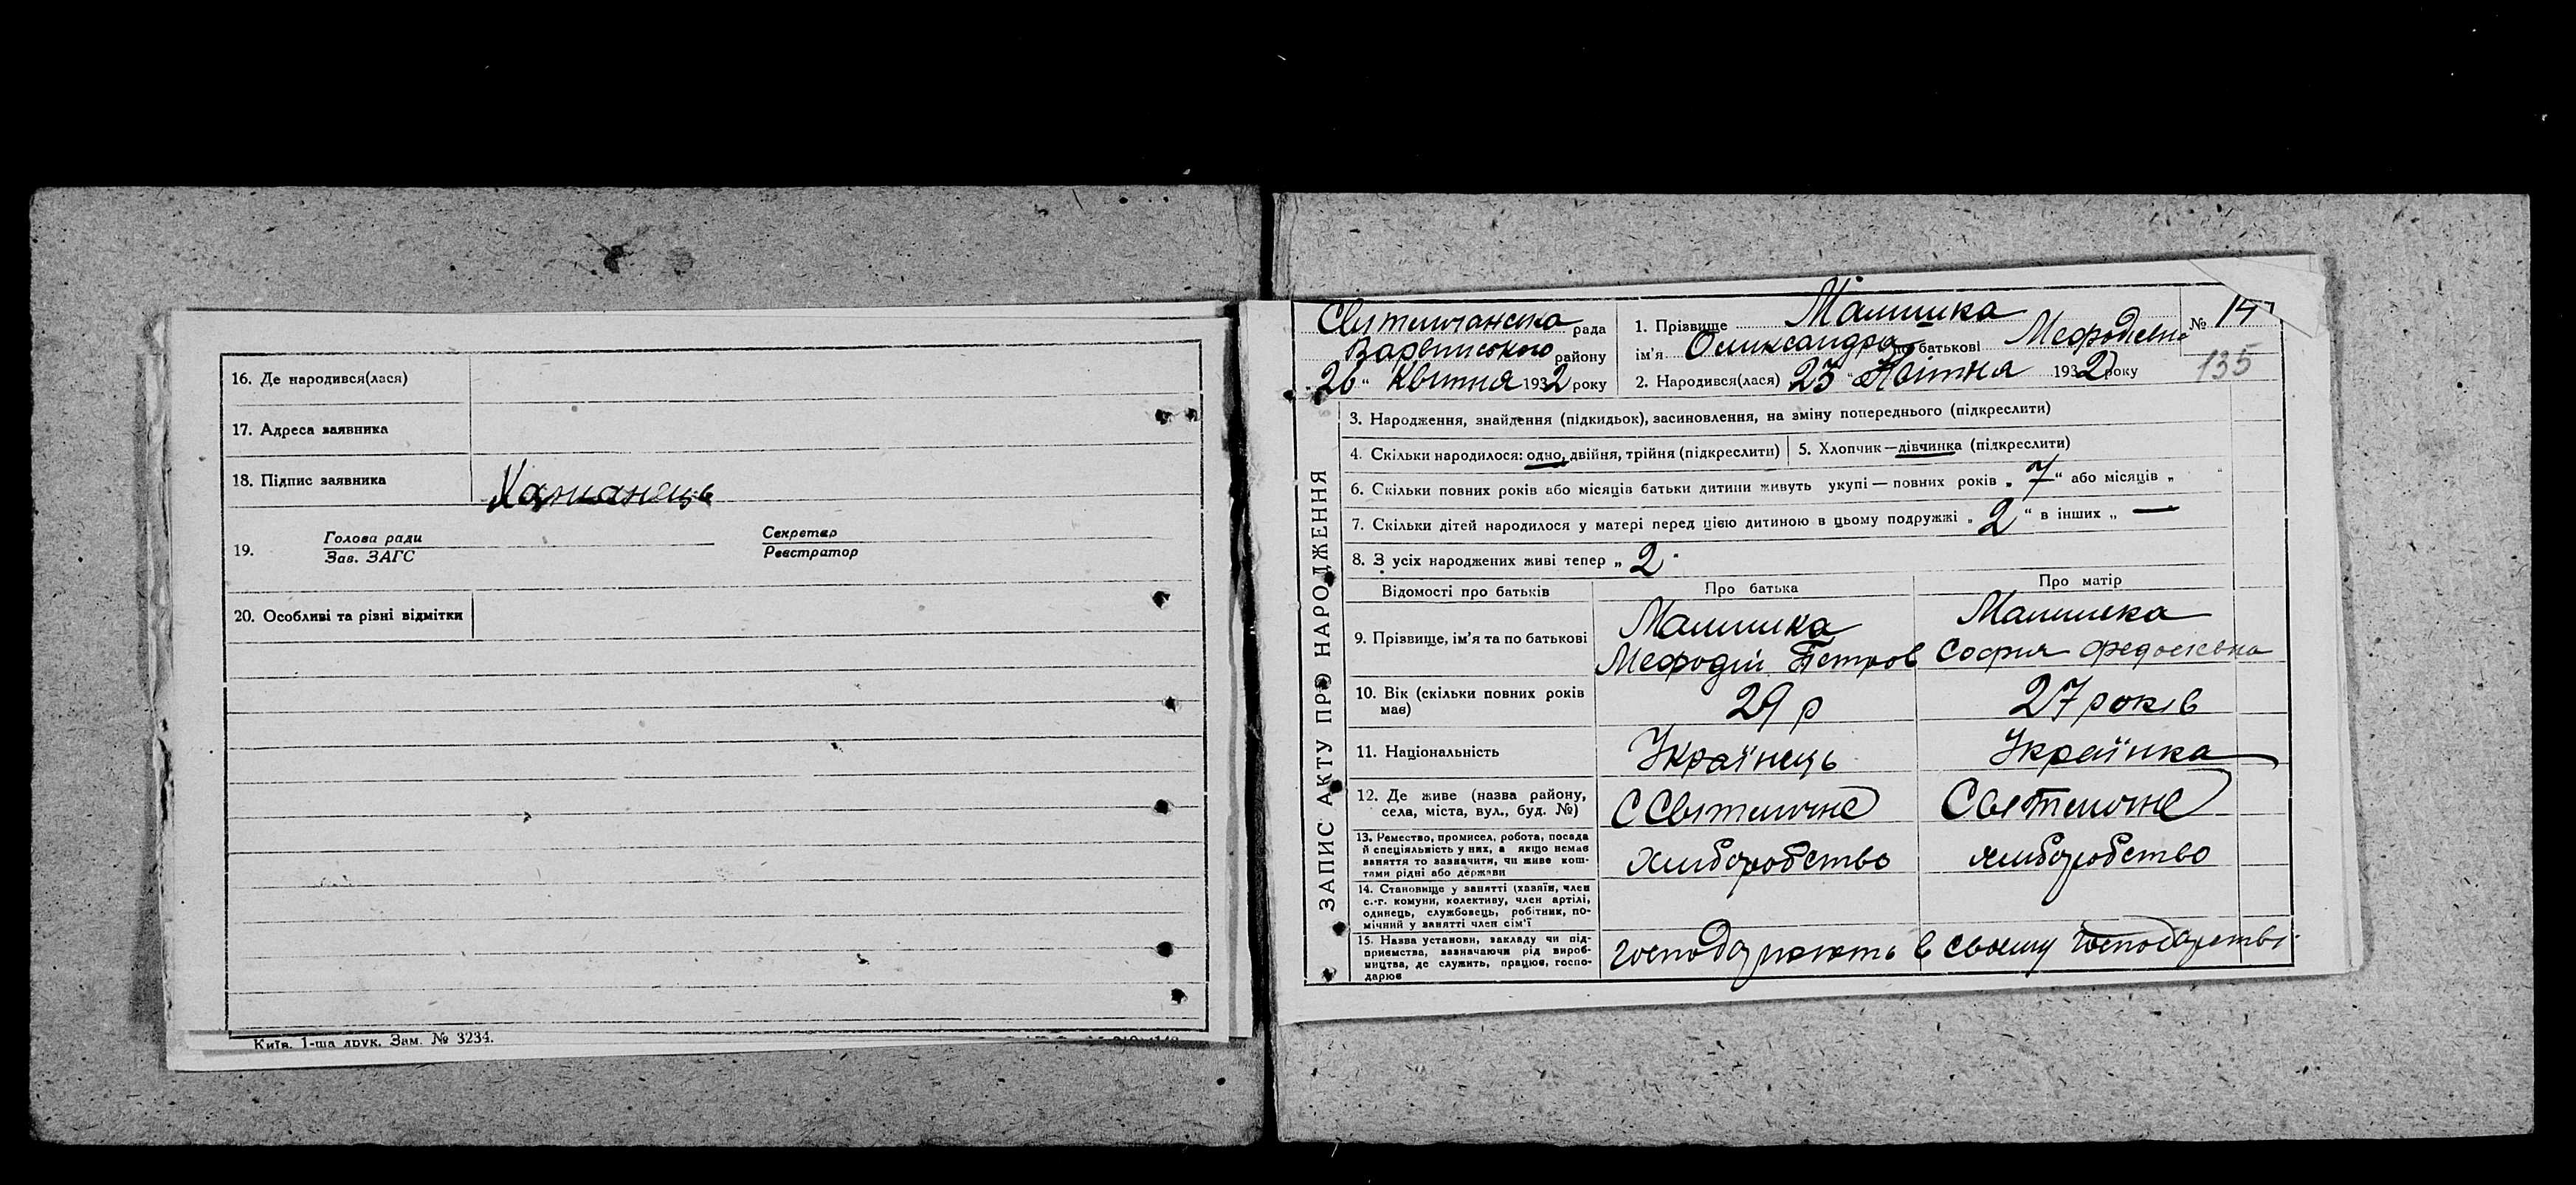 16. Де народився(лася)
17. Адреса заявника
18. Підпис заявника
19. Голова ради Секретар
Зав. ЗАГС Реєстратор
20. Особливі та різні відмітки
Київ. 1-ша друк. Зам. № 3234.
рада
району
26 „ квітня 1932 року
1. Прізвище Малишка
ім'я Оликсандра по батькові Мефодіевна
2. Народився(лася) 23 „ Квітня 1932 року
№ 14
135
ЗАПИС АКТУ ПРО НАРОДЖЕННЯ
3. Народження, знайдення (підкидьок), засиновлення, на зміну попереднього (підкреслити)
4. Скільки народилося: одно, двійня, трійня (підкреслити) 5. Хлопчик—дівчинка (підкреслити)
6. Скільки повних років або місяців батьки дитини живуть укупі — повних років „ 7 “ або місяців „ “
7. Скільки дітей народилося у матері перед цією дитиною в цьому подружжі „ 2 “ в інших „ —
8. З усіх народжених живі тепер „ 2 “
Відомості про батьків Про батька Про матір
9. Прізвище, ім'я та по батькові Малишка Малишка
Мефодій Петров София
10. Вік (скільки повних років має) 29 р 27 років
11. Національність Українець Українка
12. Де живе (назва району,
села, міста, вул., буд. №) С Свитильне Свитильне
13. Ремество, промисел, робота, посада
й спеціяльність у них, а якщо немає
заняття то зазначити, чи живе кош-
тами рідні або держави
хлиборобство хлиборобство
14. Становище у занятті (хазяїн, член
с.-г. комуни, колективу, член артілі,
одинець, службовець, робітник, по-
мічний у занятті член сім'ї
15. Назва установи, закладу чи під-
приємства, зазначаючи рід вироб-
ництва, де служить, працює, госпо-
дарює
господарюють в своему господарстві